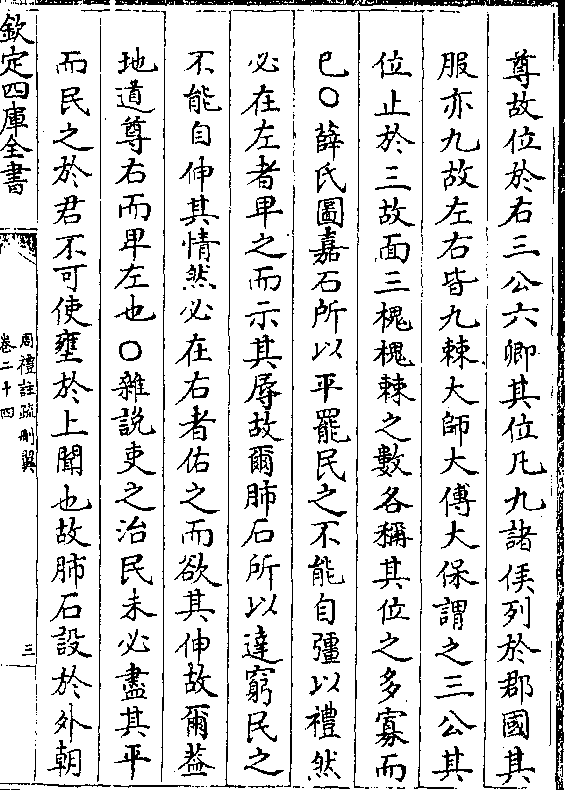 尊故位於右三公六卿其位凡九諸侯列於郡國其
服亦九故左右皆九棘大師大傅大保謂之三公其
位止於三故面三槐槐棘之數各稱其位之多寡而
已○薛氏圖嘉石所以平罷民之不能自彊以禮然
必在左者卑之而示其辱故爾肺石所以達窮民之
不能自伸其情然必在右者佑之而欲其伸故爾葢
地道尊右而卑左也○雜說吏之治民未必盡其平
而民之於君不可使壅於上聞也故肺石設於外朝
欽定四庫全書
周禮註疏刪翼
卷二十四
三